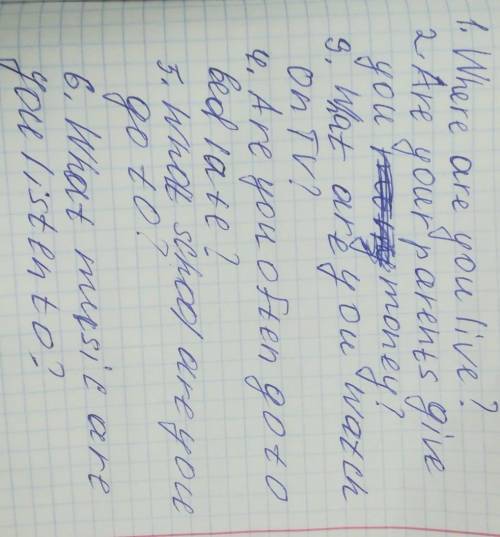 1. Where are you live?
2. Are your parents give
you money?
3. What are you watch
on TV?
4. Are you often go to
bed late?
5. What school are you
go to?
6. What music are
you listen to?